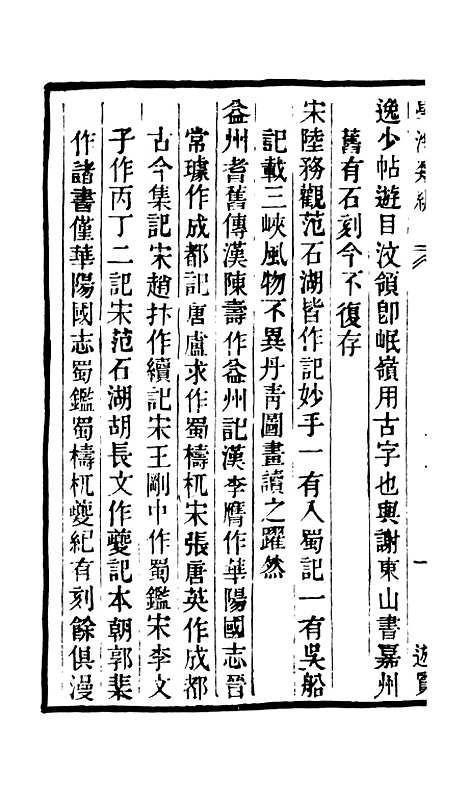 逸少帖遊目汶領卽岷嶺用古字也與謝東山書嘉州
舊有石刻今不復存
宋陸務觀范石湖皆作記妙手一有入蜀記一有吳船
記載三峽風物不異丹靑圖畫讀之躍然
益州耆舊傳漢陳壽作益州記漢李膺作華陽國志晉
常璩作成都記唐盧求作蜀檮杌宋張唐英作成都
古今集記宋趙抃作續記宋王剛中作蜀鑑宋李文
子作丙丁二記宋范石湖胡長文作夔記本朝郭棐
作諸書僅華陽國志蜀鑑蜀檮杌夔紀有刻餘俱漫